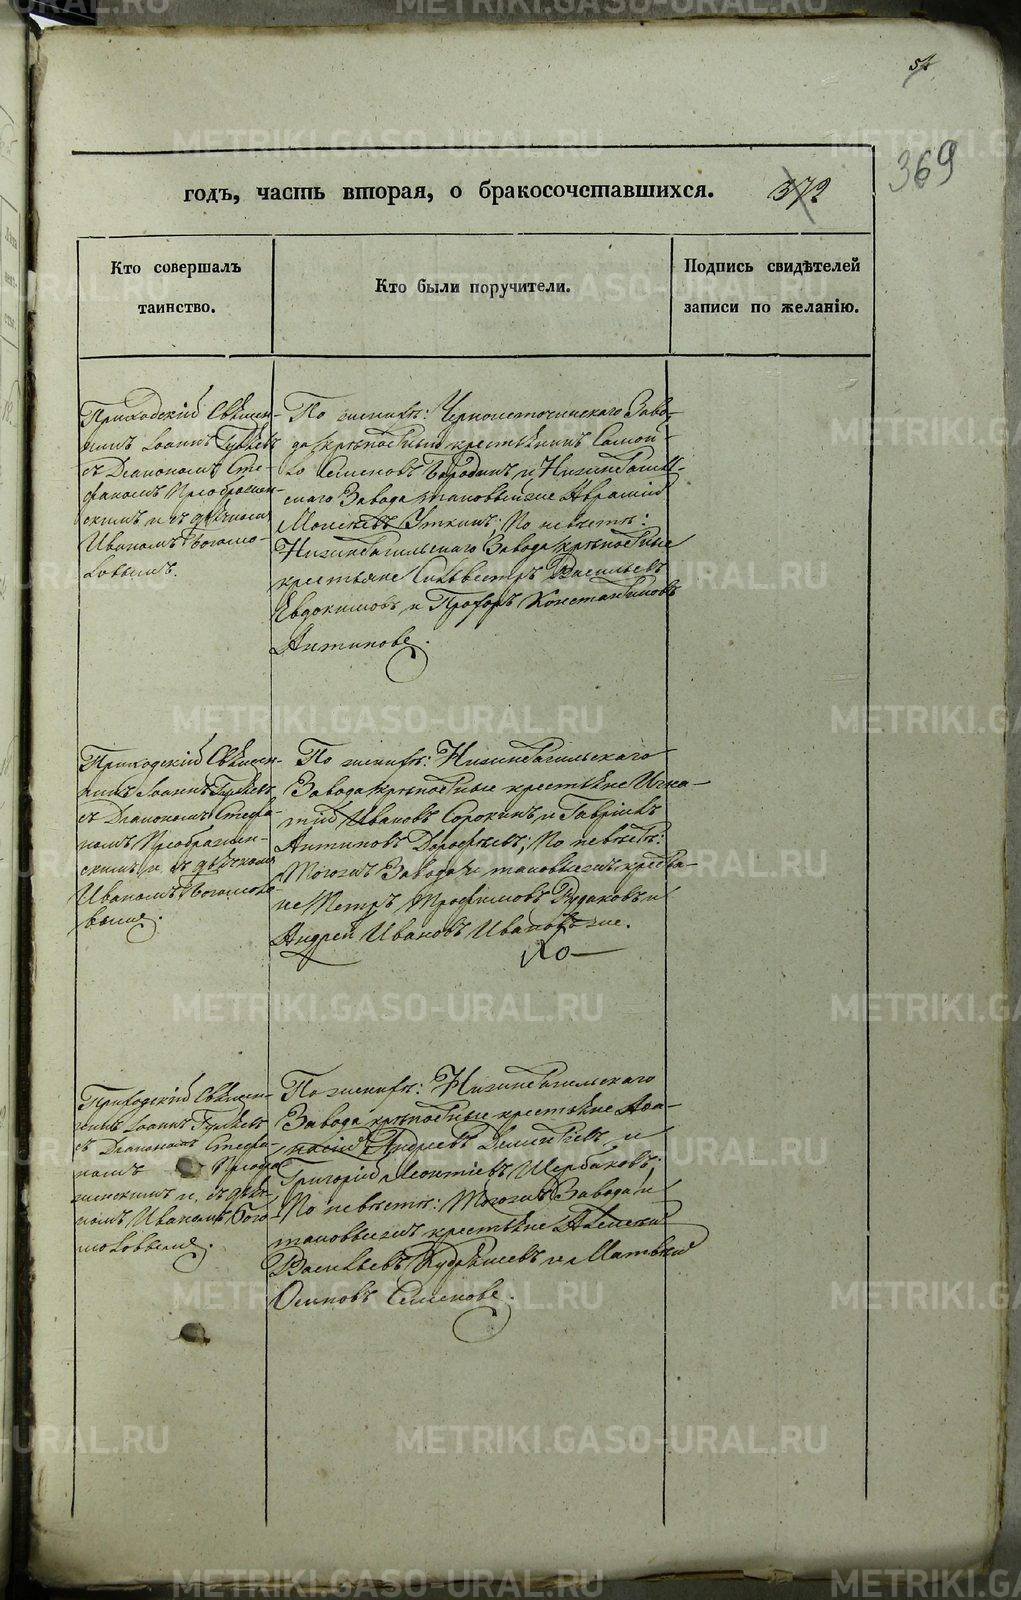 54
369
годъ, часть вторая, о бракосочетавшихся. 372
Кто совершалъ
таинство.
Кто были поручители.
Подпись свидѣтелей
записи по желанію.
Приходскій Священ-
никъ Іоаннъ
съ Діакономъ Сте-
фаномъ Преображен-
скимъ и съ дьячкомъ
Иваномъ Богомо-
ловымъ.
По женихѣ: Черноисточинскаго Заво-
да крѣпостные крестьянинъ Самой-
ло Семеновъ Бородинъ и Нижнетагиль-
скаго Завода таковыйже Аврамій
Моисеевъ Уткинъ; По невѣстѣ:
Нижнетагильскаго Завода крѣпостные
крестьяне Сильвестръ Васильевъ
Евдокимовъ и Прохоръ Константиновъ
Антиповы.
Приходскій Священ-
никъ Іоаннъ
съ Діакономъ Стефа-
номъ Преображен-
скимъ и съ дьячкомъ
Иваномъ Богомоло-
вымъ.
По женихѣ: Нижнетагильскаго
Завода крѣпостные крестьяне Игна-
тій Ивановъ Сорокинъ и Гавріилъ
Антиповъ Дорофѣевъ; По невѣстѣ:
Тогожъ Завода и таковыежъ крестья-
не Петръ Трофимовъ Рудаковъ и
Андрей Ивановъ
Приходскій Священ-
никъ Іоаннъ
съ Діакономъ Стефа-
номъ Преобра-
женскимъ и съ дьяч-
комъ Иваномъ Бого-
моловымъ.
По женихѣ: Нижнетагильскаго
Завода крѣпостные крестьяне Афа-
насій Андреевъ и
Григорій Леонтіевъ Щербаковъ;
По невѣстѣ: Тогожъ Завода и
таковыежъ крестьяне Алексѣй
Васильевъ Кудрявцевъ и Матвѣй
Осиповъ Семеновы.
METRIKI.GASO-URAL.RU